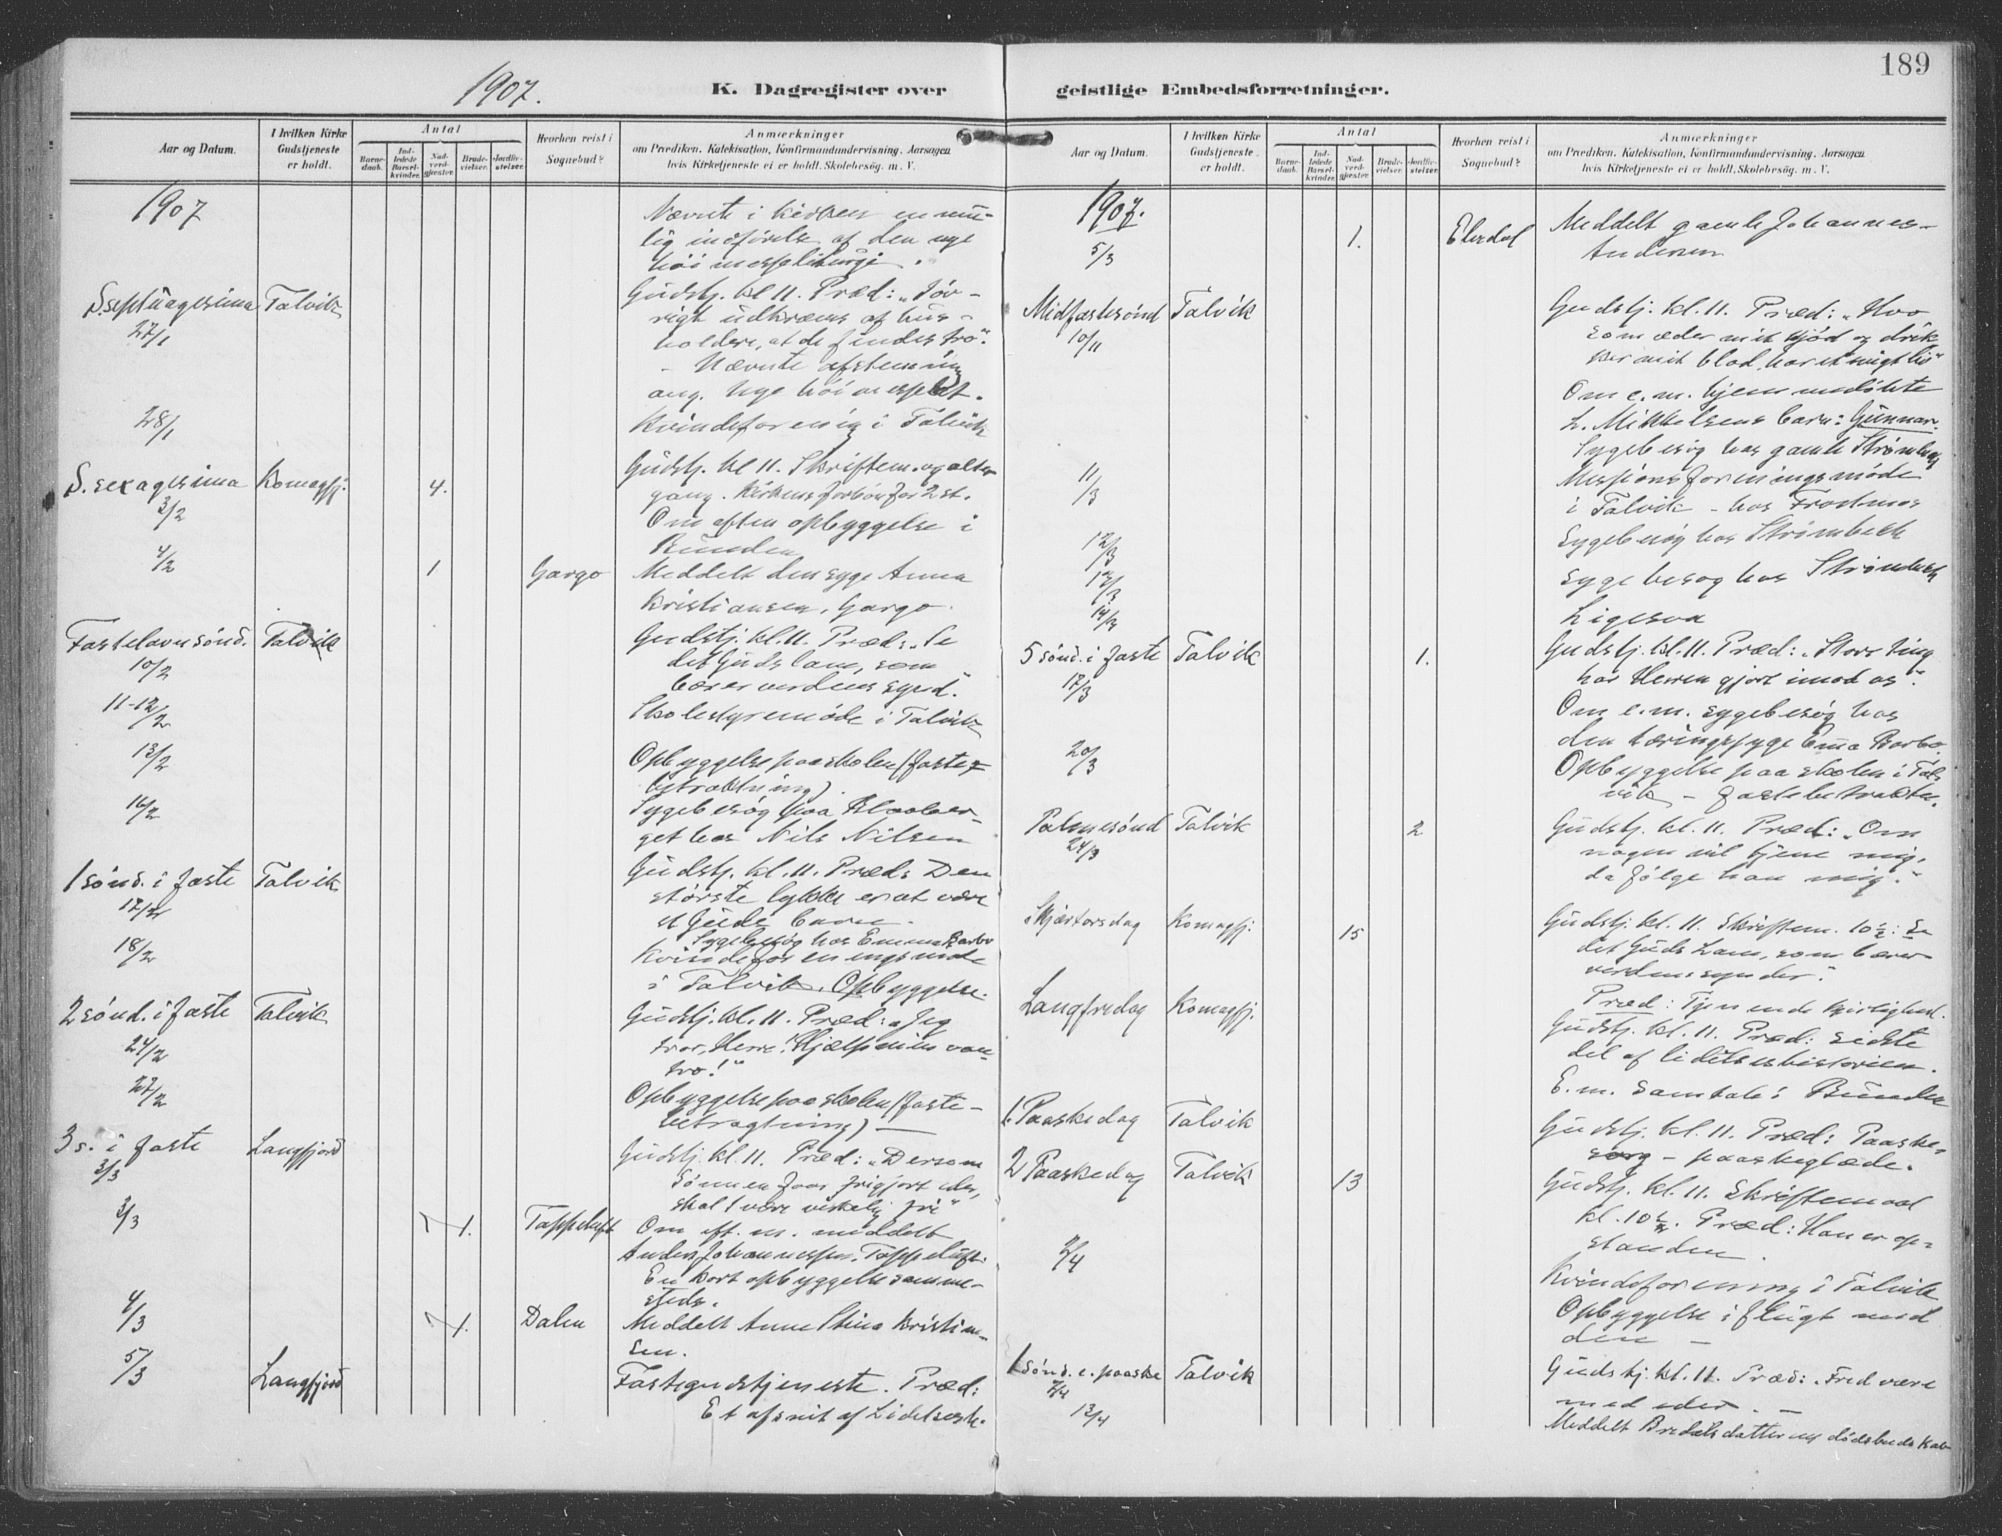 1907.
K. Dagregister over
Aar og Datum.
I hvilken Kirke Gudstjeneste er holdt.
Antal
Barne-daab.
Ind-ledede Barsel-kvinder.
Nad-verd-gjester.
Brude-vielser.
Jordfæ-stelser.
Hvorhen reist i Sognebud?
Anmærkninger
om Prædiken, Katekisation, Konfirmandundervisning, Aarsagen
hvis Kirketjeneste ei er holdt, Skolebesøg m. V.
1907
Nævnte i kirken en mu-
lig indførelse af den nye
höimesseliturgi.
S. septuagesima Talvik
27/1
Gudstj. kl. 11. Præd: „Iöv-
rigt udkræves af hus-
holdere, at de findes tro".
- Nævnte afstemning
ang. nye höimesse
28/1
Kvindeforening i Talvik
S. sexagesima Komagfj. 4.
3/2
Gudstj. kl 11. Skriftem. og alter-
gang. Kirkens forbön for 2 st.
Om aften opbyggelse i
Bunden
4/2 1 Gargo
Meddelt den syge Anna
Kristiansen, Gargo.
Fastelavnsönd. Talvik
10/2
Gudstj. kl. 11. Præd: „Se
det Guds lam, som
bærer verdens synd".
11-12/2
Skolestyremöde i Talvik
13/2
Opbyggelse paa skolen (faste-
betraktning).
16/2
Sygebesög paa
get hos Nils Nilsen
1 sönd. i faste Talvik
17/2
Gudstj. kl. 11. Præd: Den
störste lykke er at være
et Guds barn.
18/2
Sygebesög hos Emma Barbo
Kvindeforeningsmöde
i Talvik. Opbyggelse.
2 sönd. i faste Talvik
24/2
Gudstj. kl. 11. Præd: „Jeg
tror, Herre! Hjælp min van-
tro!"
27/2
Opbyggelse paa skolen (faste-
betragtning) —
3 s. i faste Langfjord
3/3
Gudstj. kl. 11. Præd: „Dersom
Sönnen faar frigjort eder,
skal I være virkelig fri"
3/3 1. Tappeluft
Om eft. m. meddelt
Anders Johannessen, Tappeluft.
En kort opbyggelse samme-
steds.
4/3 1. Dalen
Meddelt Anne Stina Kristian-
sen.
5/3 Langfjord
Fastegudstjeneste. Præd:
Et afsnit af Lidelsesh.
189
geistlige Embedsforretninger.
Aar og Datum.
I hvilken Kirke Gudstjeneste er holdt.
Antal
Barne-daab.
Ind-ledede Barsel-kvinder.
Nad-verd-gjester.
Brude-vielser.
Jordfæ-stelser.
Hvorhen reist i Sognebud?
Anmærkninger
om Prædiken, Katekisation, Konfirmandundervisning, Aarsagen
hvis Kirketjeneste ei er holdt, Skolebesøg m. V.
1907.
5/3 1. Elvedal
Meddelt gamle Johannes
Andersen
Midfastesönd Talvik
10/11
Gudstj. kl. 11. Præd: „Hvo
som æder mit kjöd og drik-
ker mit blod, har et evigt liv"
Om e.m. hjemmedöbte
L. Mikkelsens barn: Gunnar.
Sygebesög hos gamle Strömbeck
11/3
Missionsforeningsmöde
i Talvik - hos
12/3
Sygebesög hos Strömbeck
13/3
Sygebesög hos Strömbeck
14/3
Ligesaa
5 sönd. i faste Talvik 1.
17/3
Gudstj. kl. 11. Præd: „Store ting
har Herren gjort imod os".
Om e.m. sygebesög hos
den tæringssyge Emma Barbo.
20/3
Opbyggelse paa skolen i Tal-
vik - fastebetraktn.
Palmesönd Talvik 2
24/3
Gudstj. kl. 11. Præd: „Om
nogen vil tjene mig,
da fölge han mig."
Skjærtorsdag Komagfj: 15
Gudstj. kl. 11. Skriftem. 10½: Se
det Guds Lam, som bærer
verdens synder".
Præd: Tjenende kjærlighed.
Langfredag Komagfj.
Gudstj. kl. 11. Præd: sidste
del af lidelseshistorien.
E.m. samtale i Bunden
1. Paaskedag Talvik
Gudstj. kl. 11. Præd: Paaske-
sorg - paaskeglæde.
2 Paaskedag Talvik 13
Gudstj. kl. 11. Skriftemaal
kl. 10½. Præd: Han er op-
standen.
2/4
Kvindeforening i Talvik
Opbyggelse i flugt med
den —
1 sönd. e. paaske Talvik
7/4
Gudstj. kl. 11. Præd: „Fred være
med eder. —
12/4
Meddelt